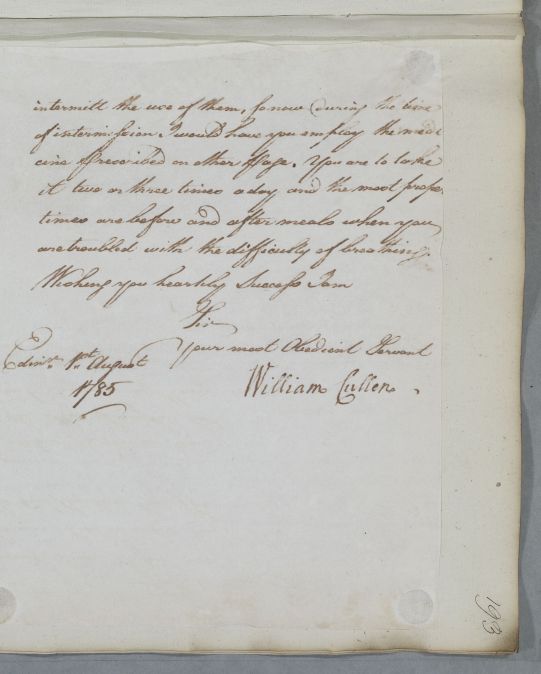 intermitt the use of them, for now During the time
of intermission I would have you employ the medi
cine Prescribed on other Page. You are to take
it two or three times a day and the most prope
times are before and after meals when you
are troubled with the difficulty of breathing.
Wishing you heartily Success I am
Sir
Your most Obedient Servant
Edinr. 1st. August
1785
William Cullen
193